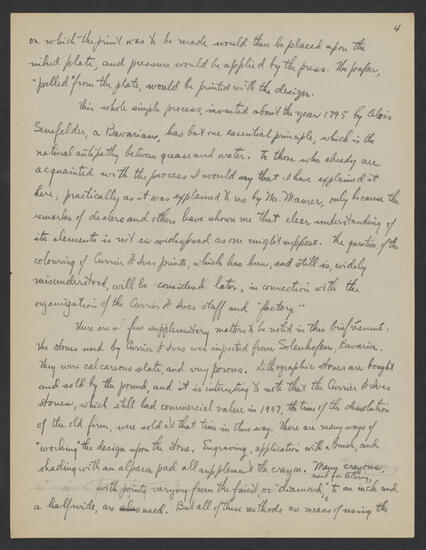 4
on which the print was to be made would then be placed upon the
inked plate, and pressure would be applied by the press. The paper,
"pulled" from the plate, would be printed with the design.
This whole simple process, invented about the year 1795 by Alois
Senefelder, a Bavarian, has but one essential principle, which is the
natural antipathy between grease and water. To those who already are
acquainted with the process I would say that I have explained it
here, practically as it was explained to me by Mr. Maurer, only because the
remarks of dealers and others have shown me that clear understanding of
its elements is not as widespread as one might suppose. The question of the
colouring of Currier & Ives prints, which has been, and still is, widely
misunderstood, will be considered later, in connection with the
organization of the Currier & Ives staff and "factory."
There are a few supplementary matters to be noted in this brief résumé.
The stones used by Currier & Ives were imported from Solenhofen, Bavaria.
They were calcareous slate, and very porous. Lithographic stones are bought
and sold by the pound, and it is interesting to note that the Currier & Ives
stones, which still had commercial value in 1907, the time of the dissolution
of the old firm, were sold at that time in this way. There are many ways of
"working" the design upon the stone. Engraving, application with a brush, and
shading with an alpaca pad all supplement the crayon. Many crayons,
used for lettering,
with points varying from the finest, or "diamond," to an inch and
a half wide, are also used. But all of these methods are means of using the